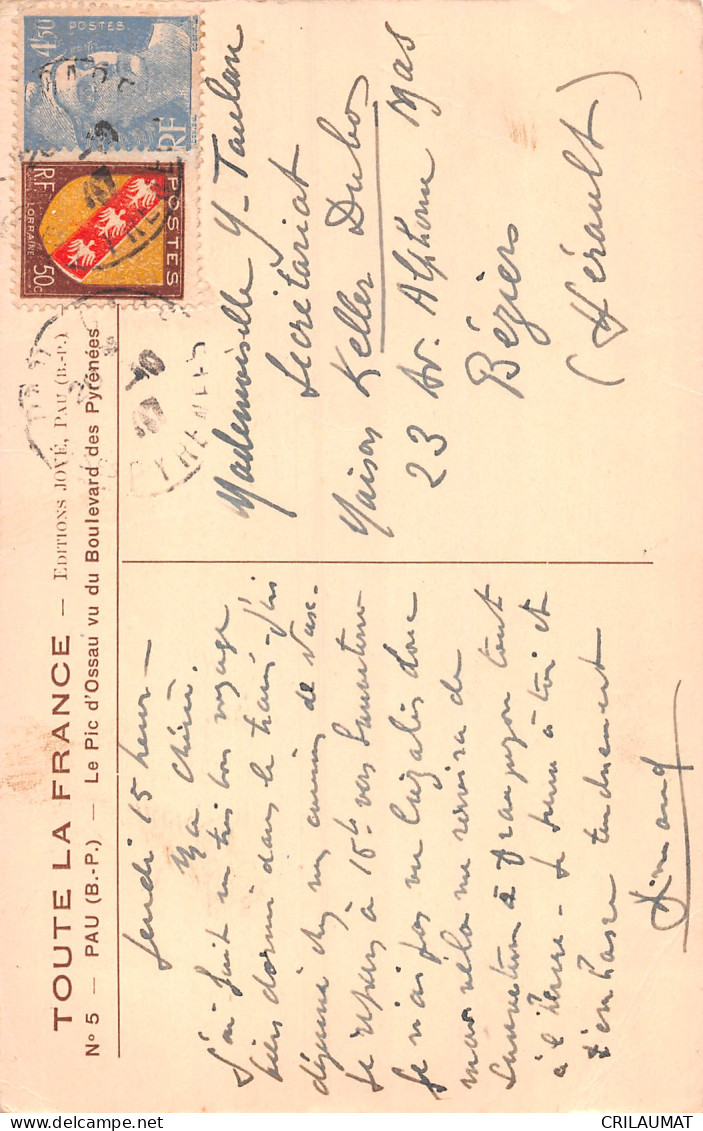 TOUTE LA FRANCE — EDITIONS JOVÉ, PAU (B.-P.)
N° 5 — PAU (B.-P.) — Le Pic d'Ossau vu du Boulevard des Pyrénées
4f50
POSTES
RF
POSTES
RF
LORRAINE
50c
Mademoiselle Y. Taulan
Secrétariat
Maison Keller Dubos
23 Av. Alphonse Mas
Béziers
(Hérault)
Jeudi 15 heures —
Ma Chérie.
J'ai fait un très bon voyage
bien dormi dans le train — J'ai
déjeuné chez mes cousins de
Je repars à 16h vers Sauveterre
Je n'ai pas vu donc
mon vélo me servira de
Sauveterre à tout
à l'heure — Je pense à toi et
t'embrasse tendrement
CRILAUMAT